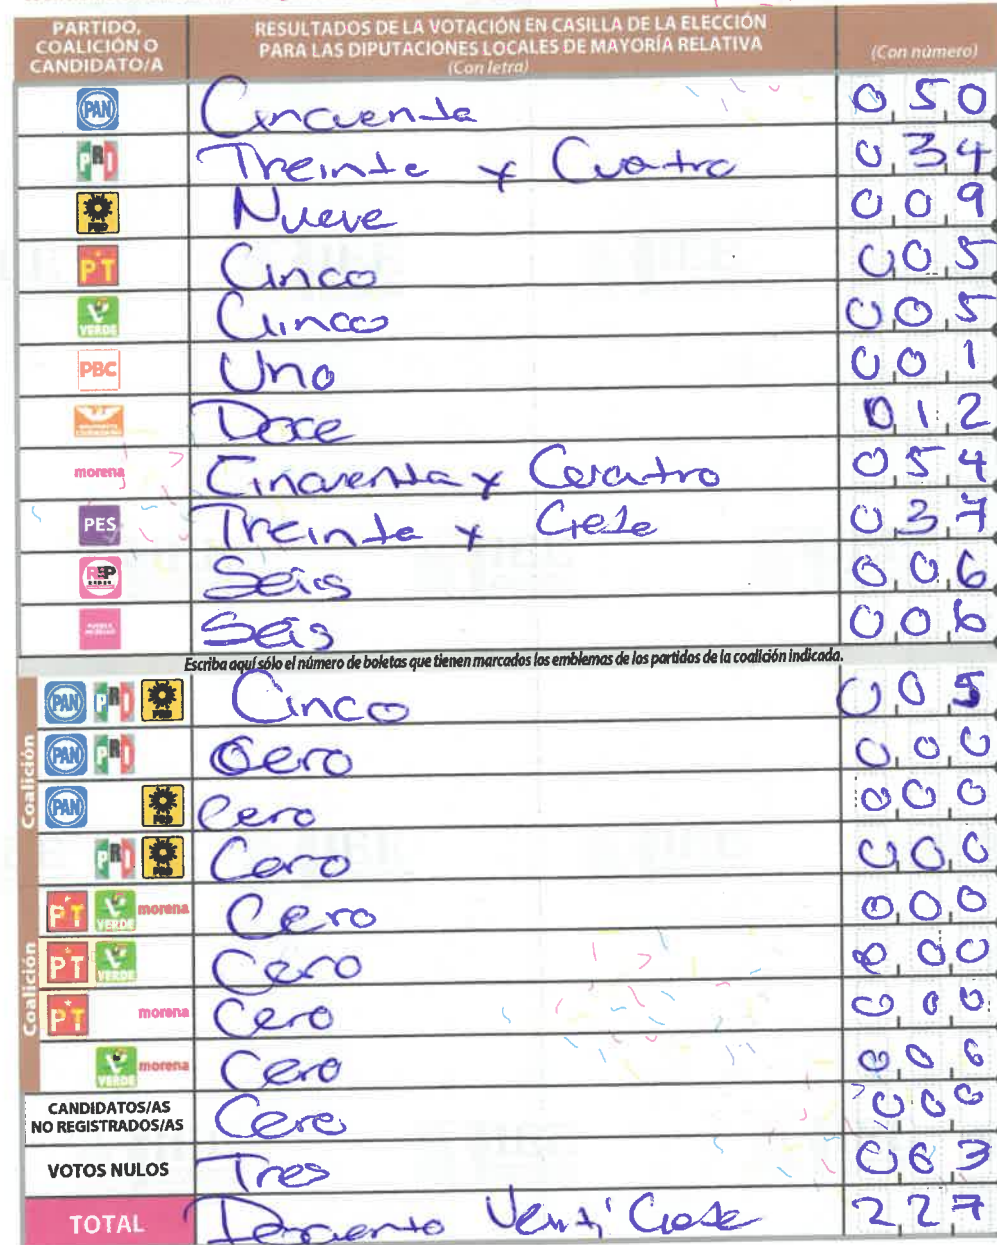 PARTIDO, COALICIÓN O CANDIDATO/A
RESULTADOS DE LA VOTACIÓN EN CASILLA DE LA ELECCIÓN PARA LAS DIPUTACIONES LOCALES DE MAYORÍA RELATIVA
(Con letra)
(Con número)
PAN Cincuenta 050
PRI Treinta y Cuatro 034
PRD Nueve 009
PT Cinco 005
VERDE Cinco 005
PBC Uno 001
Doce 012
morena Cincuenta y Cuatro 054
PES Treinta y Ciete 037
RSP Seis 006
Seis 006
Escriba aquí sólo el número de boletas que tienen marcados los emblemas de los partidos de la coalición indicada.
Coalición
PAN PRI PRD Cinco 005
PAN PRI Cero 000
PAN PRD Cero 000
PRI PRD Cero 000
Coalición
PT VERDE morena Cero 000
PT VERDE Cero 000
PT morena Cero 000
VERDE morena Cero 000
CANDIDATOS/AS NO REGISTRADOS/AS Cero 000
VOTOS NULOS Tres 003
TOTAL 227